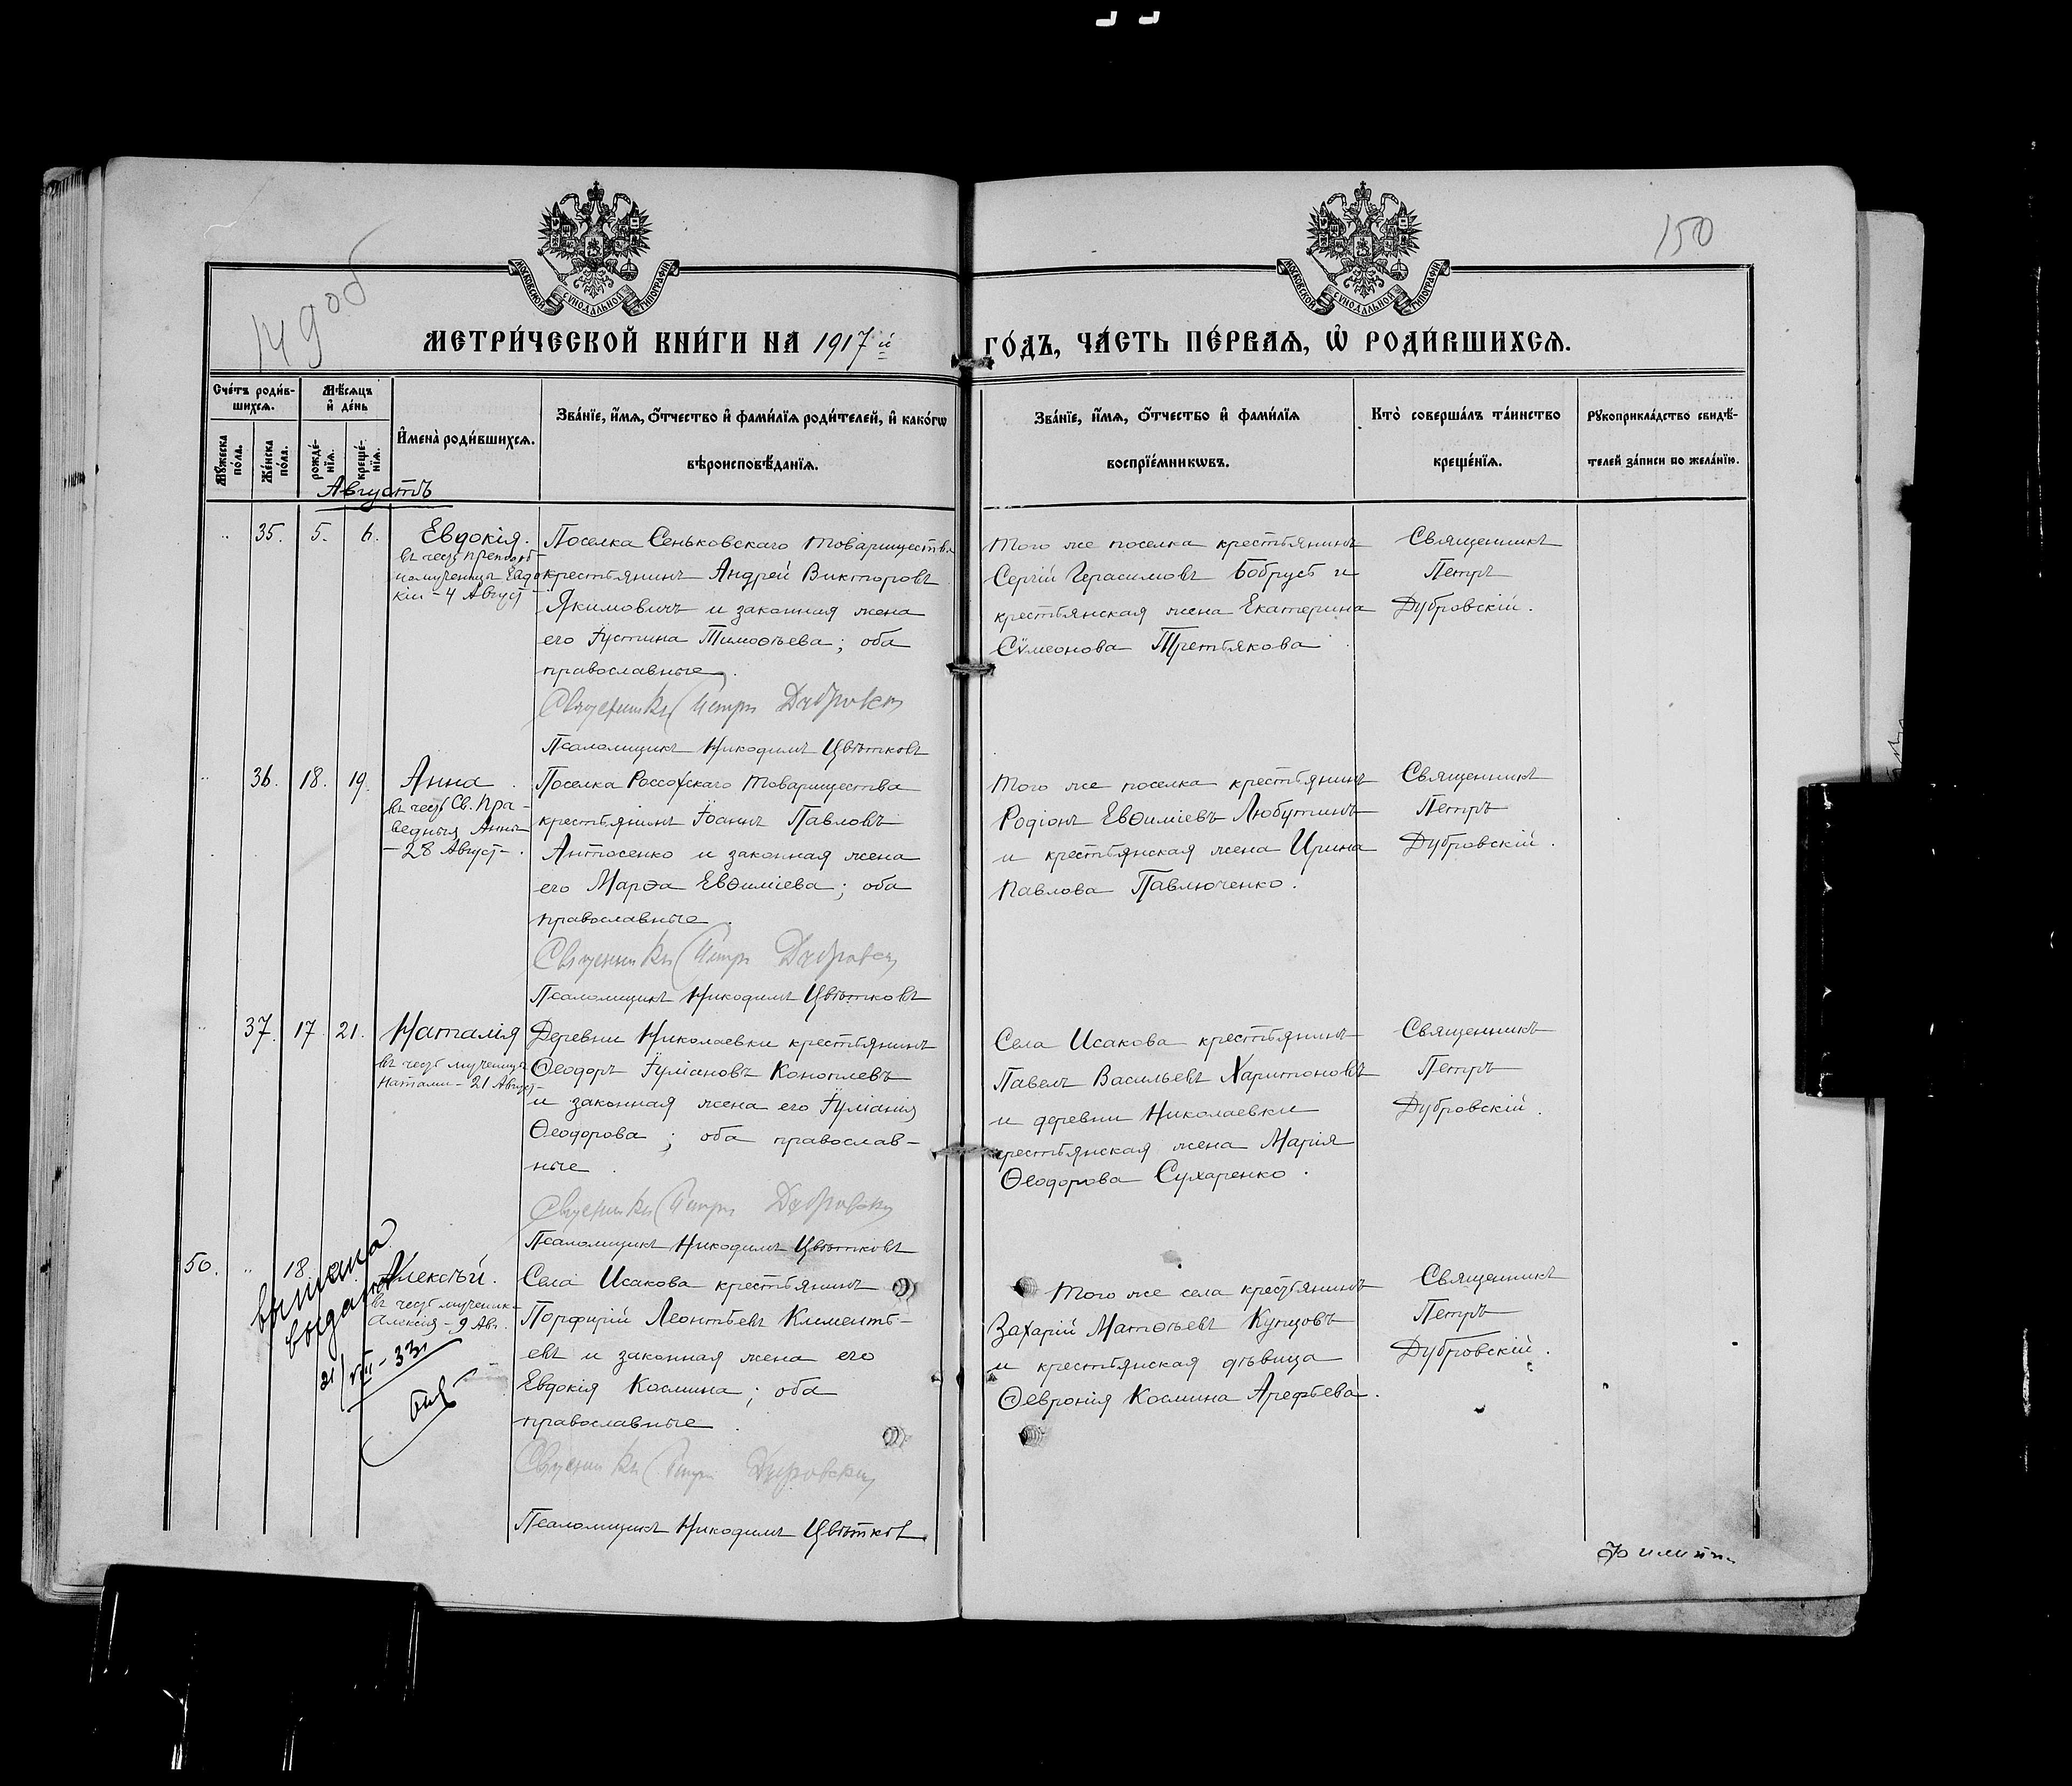 149 об
150
МОСКОВСКОЙ СУНОДАЛЬНОЙ ТИПОГРАФІИ
МОСКОВСКОЙ СУНОДАЛЬНОЙ ТИПОГРАФІИ
МЕТРИ́ЧЕСКОЙ КНИ́ГИ НА 1917 й
ГО́ДЪ, ЧА́СТЬ ПЕ́РВАѦ, Ѡ҆ РОДИ́ВШИХСѦ.
Сче́тъ роди́в-
шихсѧ.
Мѣ́сѧцъ
и҆ де́нь
Мꙋ́жеска
по́ла.
Же́нска
по́ла.
рожде́-
нїѧ.
креще́-
нїѧ.
И҆мена̀ роди́вшихсѧ.
Зва́нїе, и҆́мѧ, ѻ҆́тчество и҆ фами́лїѧ роди́телей, и҆ како́гѡ
вѣроисповѣ́данїѧ.
Зва́нїе, и҆́мѧ, ѻ҆́тчество и҆ фами́лїѧ
воспрїе́мникѡвъ.
Кто̀ соверша́лъ та́инство
креще́нїѧ.
Рꙋкоприкла́дство свидѣ́-
телей за́писи по жела́нїю.
Августъ
35. 5. 6. Евдокія.
въ честь преподоб-
номученицы Евдо-
кіи - 4 Август -
Поселка Сеньковскаго товарищества
крестьянинъ Андрей Викторовъ
Якимовичъ и законная жена
его Іустина Тимоѳеева; оба
православные.
Священникъ Петръ Дубровскій
Псаломщикъ Никодимъ Цвѣтковъ
Того же поселка крестьянинъ
Сергій Герасимовъ Бобрусь и
крестьянская жена Екатерина
Сѵмеонова Третьякова
Священникъ
Петръ
Дубровскій.
36. 18. 19. Анна.
въ честь Св. Пра-
ведныя Анны
- 28 Август -.
Поселка Россохскаго товарищества
крестьянинъ Іоаннъ Павловъ
Антосенко и законная жена
его Марѳа Евѳиміева; оба
православные.
Священникъ Петръ Дубровскій
Псаломщикъ Никодимъ Цвѣтковъ
Того же поселка крестьянинъ
Родіонъ Евѳиміевъ Любутинъ
и крестьянская жена Ирина
Павлова Павлюченко.
Священникъ
Петръ
Дубровскій.
37. 17. 21. Наталія
въ честь мученицы
Наталіи - 21 Август -
Деревни Николаевки крестьянинъ
Ѳеодоръ Іуліановъ Коноплевъ
и законная жена его Іуліанія
Ѳеодорова; оба православ-
ные.
Священникъ Петръ Дубровскій
Псаломщикъ Никодимъ Цвѣтковъ
Села Исакова крестьянинъ
Павелъ Васильевъ Харитоновъ
и деревни Николаевки
крестьянская жена Марія
Ѳеодорова Сухаренко.
Священникъ
Петръ
Дубровскій.
50. 18. Алексѣй.
въ честь мученик.
Алексія - 9 Авг.
выписка
выдана
21/VIII - 33
Села Исакова крестьянинъ
Порфирій Леонтьевъ Климентъ-
евъ и законная жена его
Евдокія Космина; оба
православные.
Священникъ Петръ Дубровскій
Псаломщикъ Никодимъ Цвѣтковъ
Того же села крестьянинъ
Захарій Матѳеевъ Купцовъ
и крестьянская дѣвица
Ѳевронія Космина Арефьева.
Священникъ
Петръ
Дубровскій.